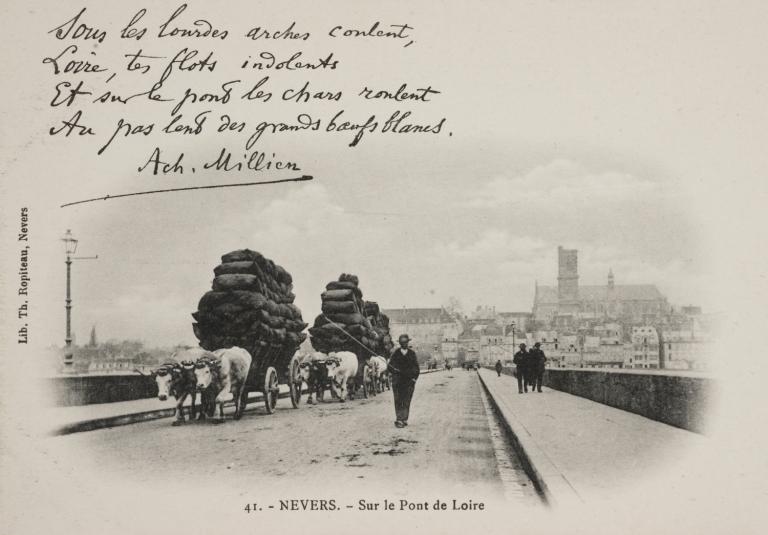 Sous les lourdes arches coulent,
Loire, tes flots indolents
Et sur le pont les chars roulent
Au pas lent des grands bœufs blancs.
Ach. Millien
Lib. Th. Ropiteau, Nevers
41. - NEVERS. - Sur le Pont de Loire